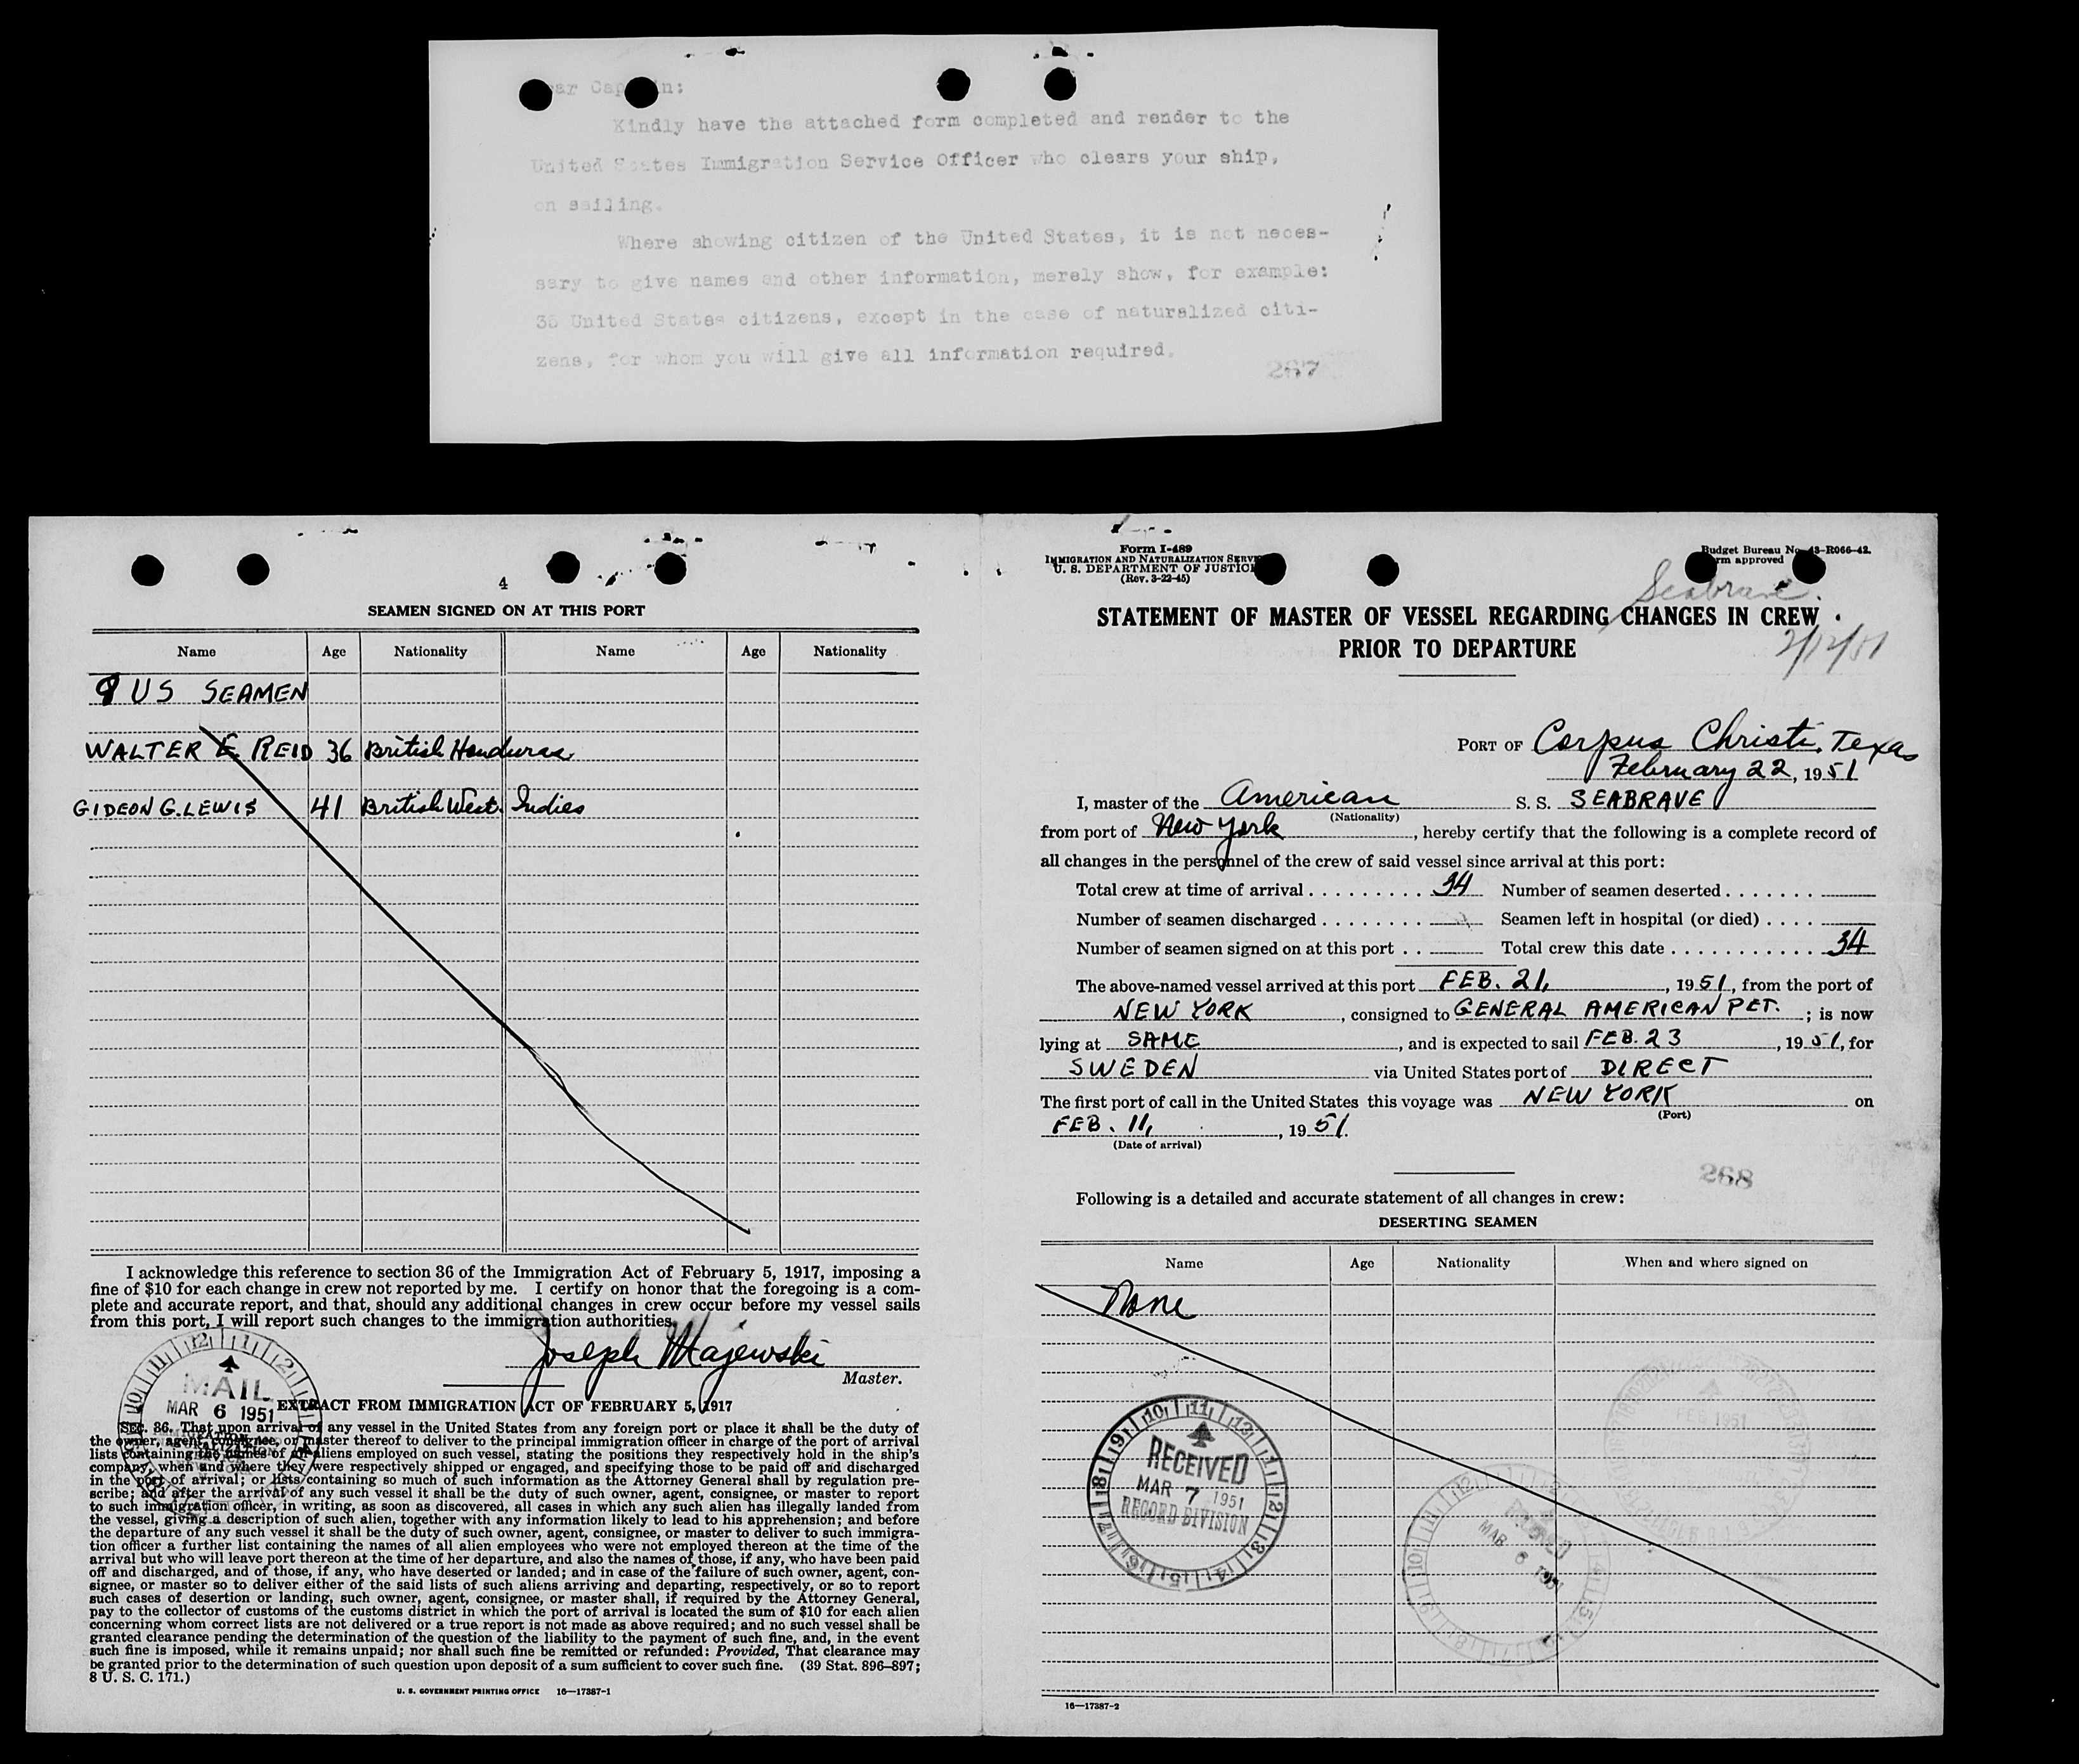 Captain:
Kindly have the attached form completed and render to the
United States Immigration Service Officer who clears your ship,
on sailing.
Where showing citizen of the United States, it is not neces-
sary to give names and other information, merely show, for example:
35 United States citizens, except in the case of naturalized citi-
zens, for whom you will give all information required.
267
4
SEAMEN SIGNED ON AT THIS PORT
Name Age Nationality Name Age Nationality
9 US SEAMEN
WALTER E REID 36 British Honduras
GIDEON G. LEWIS 41 British West Indies
I acknowledge this reference to section 36 of the Immigration Act of February 5, 1917, imposing a
fine of $10 for each change in crew not reported by me. I certify on honor that the foregoing is a com-
plete and accurate report, and that, should any additional changes in crew occur before my vessel sails
from this port, I will report such changes to the immigration authorities.
Joseph Majewski
Master.
MAIL
MAR 6 1951
EXTRACT FROM IMMIGRATION ACT OF FEBRUARY 5, 1917
SEC. 36. That upon arrival of any vessel in the United States from any foreign port or place it shall be the duty of
the owner, agent, consignee, or master thereof to deliver to the principal immigration officer in charge of the port of arrival
lists containing the names of all aliens employed on such vessel, stating the positions they respectively hold in the ship's
company, when and where they were respectively shipped or engaged, and specifying those to be paid off and discharged
in the port of arrival; or lists containing so much of such information as the Attorney General shall by regulation pre-
scribe; and after the arrival of any such vessel it shall be the duty of such owner, agent, consignee, or master to report
to such immigration officer, in writing, as soon as discovered, all cases in which any such alien has illegally landed from
the vessel, giving a description of such alien, together with any information likely to lead to his apprehension; and before
the departure of any such vessel it shall be the duty of such owner, agent, consignee, or master to deliver to such immigra-
tion officer a further list containing the names of all alien employees who were not employed thereon at the time of the
arrival but who will leave port thereon at the time of her departure, and also the names of those, if any, who have been paid
off and discharged, and of those, if any, who have deserted or landed; and in case of the failure of such owner, agent, con-
signee, or master so to deliver either of the said lists of such aliens arriving and departing, respectively, or so to report
such cases of desertion or landing, such owner, agent, consignee, or master shall, if required by the Attorney General,
pay to the collector of customs of the customs district in which the port of arrival is located the sum of $10 for each alien
concerning whom correct lists are not delivered or a true report is not made as above required; and no such vessel shall be
granted clearance pending the determination of the question of the liability to the payment of such fine, and, in the event
such fine is imposed, while it remains unpaid; nor shall such fine be remitted or refunded: Provided, That clearance may
be granted prior to the determination of such question upon deposit of a sum sufficient to cover such fine. (39 Stat. 896–897;
8 U. S. C. 171.)
U. S. GOVERNMENT PRINTING OFFICE 16—17387-1
Form I-489
IMMIGRATION AND NATURALIZATION SERVICE
U. S. DEPARTMENT OF JUSTICE
(Rev. 3-22-45)
Budget Bureau No. 43-R066-42.
Form approved
Seabrave.
2/12/51
STATEMENT OF MASTER OF VESSEL REGARDING CHANGES IN CREW
PRIOR TO DEPARTURE
PORT OF Corpus Christi, Texas
February 22, 1951
I, master of the American S. S. SEABRAVE
(Nationality)
from port of New York, hereby certify that the following is a complete record of
all changes in the personnel of the crew of said vessel since arrival at this port:
Total crew at time of arrival . . . . . . . . . . 34 Number of seamen deserted . . . . . . .
Number of seamen discharged . . . . . . . . . Seamen left in hospital (or died) . . . .
Number of seamen signed on at this port . . Total crew this date . . . . . . . . . . . . 34
The above-named vessel arrived at this port FEB. 21, 1951, from the port of
NEW YORK, consigned to GENERAL AMERICAN PET. ; is now
lying at SAME, and is expected to sail FEB. 23, 1951, for
SWEDEN via United States port of DIRECT
The first port of call in the United States this voyage was NEW YORK on
(Port)
FEB. 11, 1951.
(Date of arrival)
268
Following is a detailed and accurate statement of all changes in crew:
DESERTING SEAMEN
Name Age Nationality When and where signed on
None
RECEIVED
MAR 7 1951
RECORD DIVISION
MAR 6 1951
FEB 1951
16—17387-2